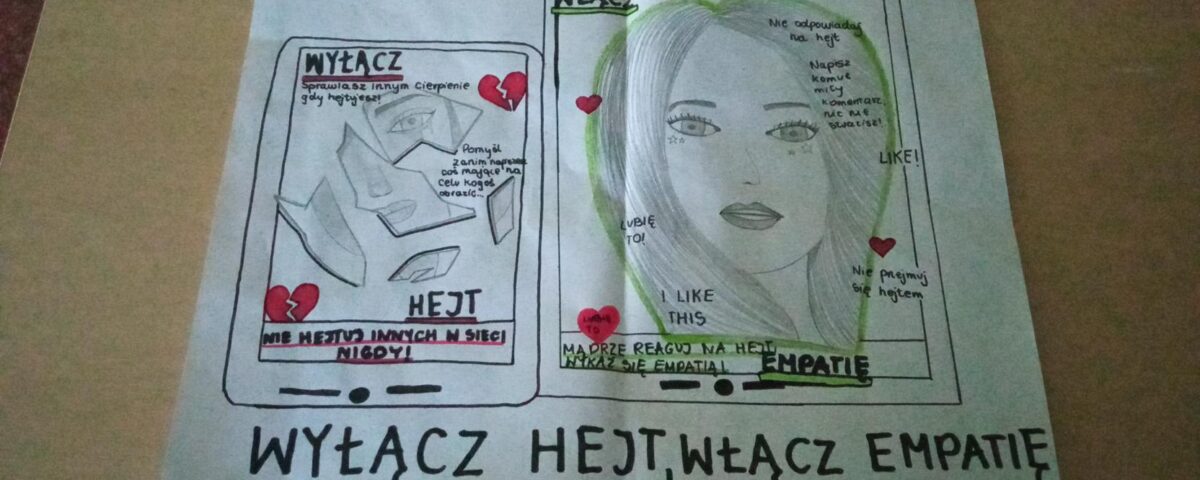 WYŁĄCZ
Sprawiasz innym cierpienie
gdy hejtujesz!
Pomyśl
zanim napiszesz
coś mające na
celu kogoś
obrazić...
HEJT
NIE HEJTUJ INNYCH W SIECI
NIGDY!
WŁĄCZ
Nie odpowiadaj
na hejt
Napisz
komuś
miły
komentarz,
nic nie
stracisz!
LIKE!
LUBIĘ
TO!
Nie prejmuj
się hejtem
I LIKE
THIS
LUBIĘ
TO
MĄDRZE REAGUJ NA HEJT,
WYKAŻ SIĘ EMPATIĄ!
EMPATIĘ
WYŁĄCZ HEJT, WŁĄCZ EMPATIĘ